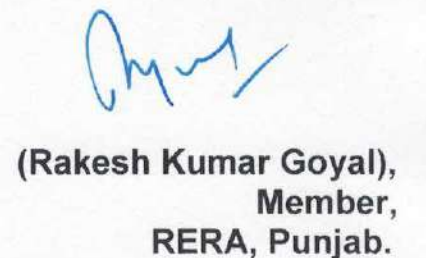 (Rakesh Kumar Goyal),
Member,
RERA, Punjab.